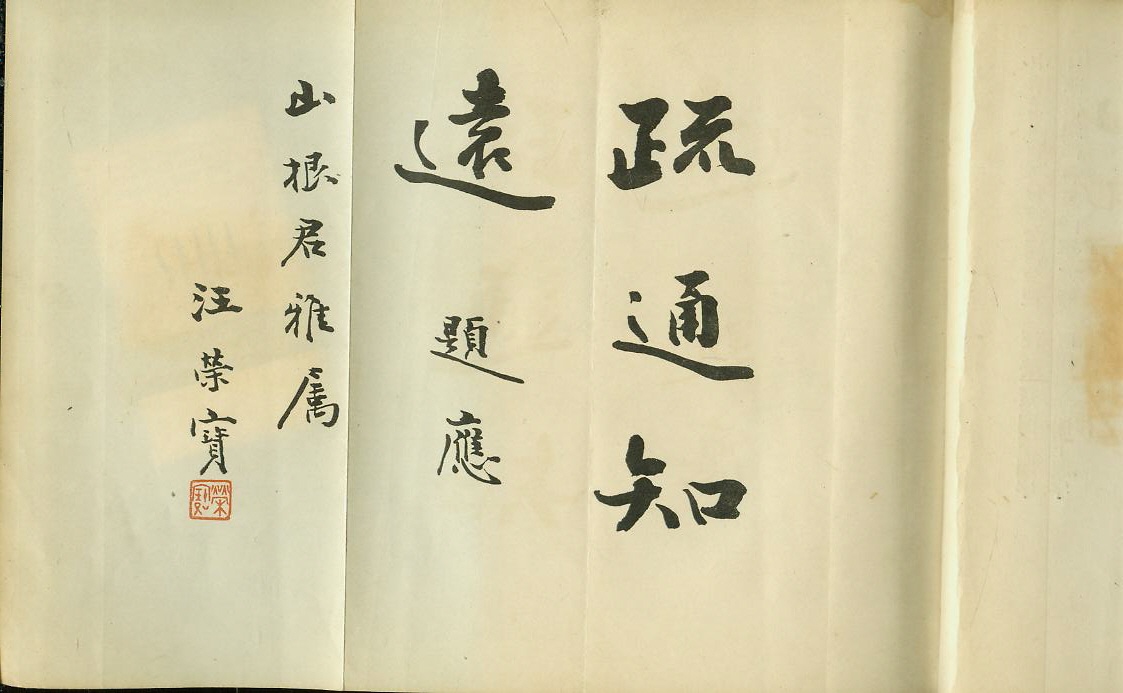 疏通知
遠 題應
山根君雅属
汪榮寶
榮寶